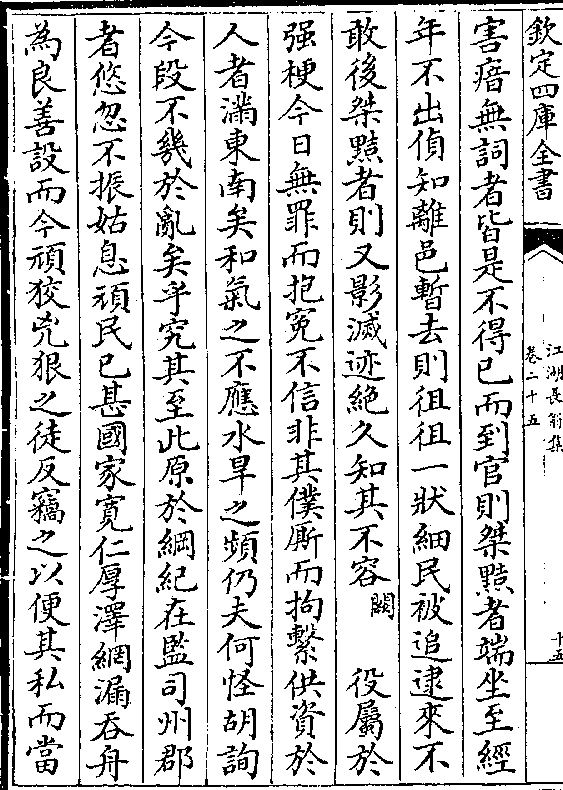 欽定四庫全書
江湖長翁集
卷二十五
十五
害瘖無詞者皆是不得已而到官則桀黠者端坐至經
年不出偵知離邑暫去則徂徂一狀細民被追逮來不
敢後桀黠者則又影滅迹絶久知其不容闕役屬於
强梗今日無罪而抱寃不信非其僕厮而拘繫供資於
人者滿東南矣和氣之不應水旱之頻仍夫何怪胡詢
今段不幾於亂矣乎究其至此原於綱紀在監司州郡
者悠忽不振姑息頑民已甚國家寛仁厚澤網漏吞舟
為良善設而今頑狡兇狠之徒反竊之以便其私而當